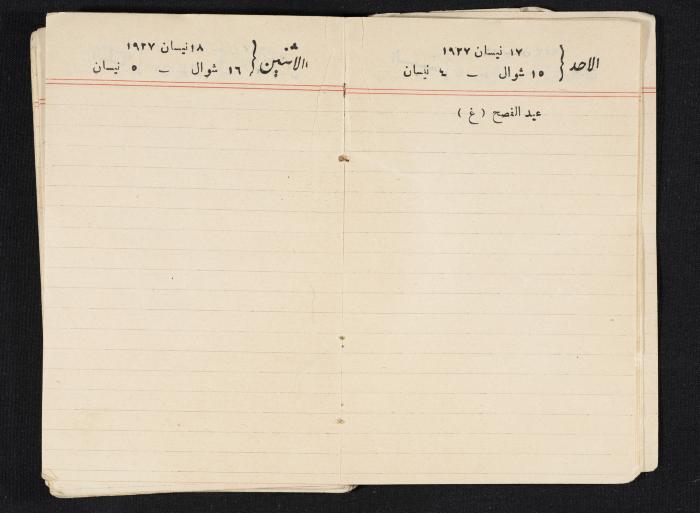 الاحد { ١٧ نيسان ١٩٢٧
١٥ شوال – ٤ نيسان
عيد الفصح ( غ )
الاثنين { ١٨ نيسان ١٩٢٧
١٦ شوال – ٥ نيسان